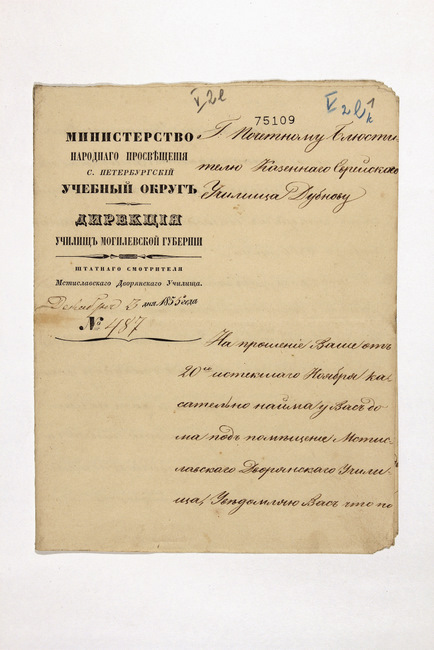 V 2e
75109
V 2e 1/k
МИНИСТЕРСТВО
НАРОДНАГО ПРОСВѢЩЕНІЯ
С. ПЕТЕРБУРГСКІЙ
УЧЕБНЫЙ ОКРУГЪ
ДИРЕКЦІЯ
УЧИЛИЩЪ МОГИЛЕВСКОЙ ГУБЕРНІИ
ШТАТНАГО СМОТРИТЕЛЯ
Мстиславскаго Дворянскаго Училища.
Декабря 3 дня 1855 года
№ 487
Г. Почетному Блюсти-
телю Казеннаго Еврейскаго
Училища Г. Дубнову
На прошеніе Ваше отъ
20го истекшаго Ноября ка-
сательно найма у Васъ до-
ма подъ помѣщеніе Мстис-
лавскаго Дворянскаго Учили-
ща, Увѣдомляю Васъ что по